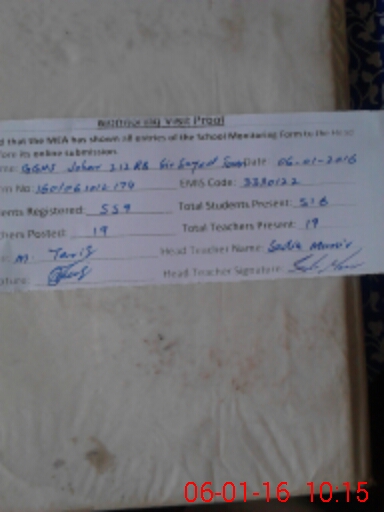 Monitoring Visit Proof
d that the MEA has shown all entries of the School Monitoring Form to the Head
fore its online submission.
me: GGHS Johar 212 RB Date 06-01-2016
m No: EMIS Code: 3330122
ents Registered: 559 Total Students Present: 518
chers Posted: 19 Total Teachers Present: 19
e: M. Tariq Head Teacher Name: Sadia Munir
ature: Head Teacher Signature:
06-01-16 10:15